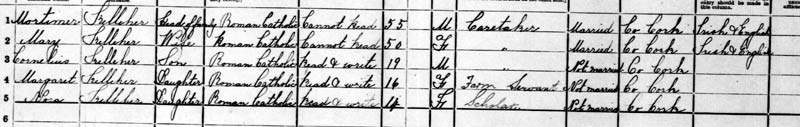 1 Mortimer Kelleher Head of family Roman Catholic Cannot read 55 M Caretaker Married Co Cork Irish & English
2 Mary Kelleher Wife Roman Catholic Cannot read 50 F " Married Co Cork Irish & English
3 Cornelius Kelleher Son Roman Catholic Read & write 19 M " Not married Co Cork
4 Margaret Kelleher Daughter Roman Catholic Read & write 16 F Farm Servant Not married Co Cork
5 Nora Kelleher Daughter Roman Catholic Read & write 14 F Scholar Not married Co Cork
6